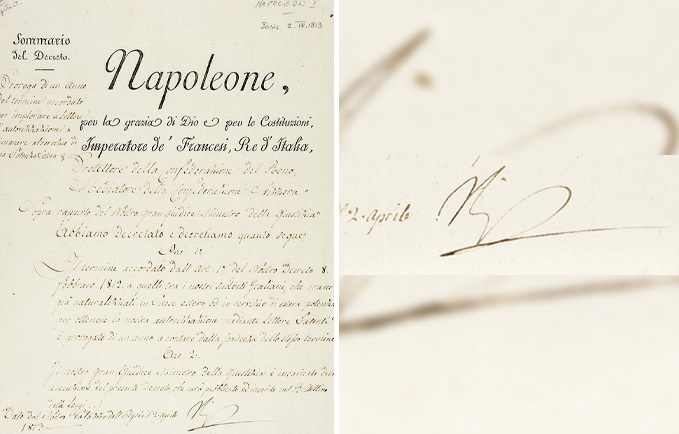 NAPOLEON I
Paris, 2. IV. 1813
Sommario
del Decreto.
Proroga di un anno
del termine accordato
per implorare le Lettere
d'autorizzazione a
rimanere al servizio di
Napoleone,
per la grazia di Dio e per le Costituzioni,
Imperatore de' Francesi, Re d'Italia,
Protettore della Confederazione del Reno,
e Mediatore della Confederazione Svizzera
Sopra rapporto del Nostro gran Giudice Ministro della Giustizia
Abbiamo decretato e decretiamo quanto segue:
Art. 1.
Il termine accordato dall'Art. 1.º del Nostro Decreto 8.
febbraro 1812 a quelli tra i nostri sudditi Italiani, che erano
già naturalizzati in Paese estero od in servizio di estera potenza
per ottenere la nostra autorizzazione mediante Lettere Patenti
è prorogato di un anno a contare dalla scadenza dello stesso termine
Art. 2.
Il nostro gran Giudice Ministro della Giustizia è incaricato della
esecuzione del presente Decreto, che sarà pubblicato ed inserito nel Bollettino
delle Leggi.
Dato dal Nostro 2 aprile
1813
2. aprile